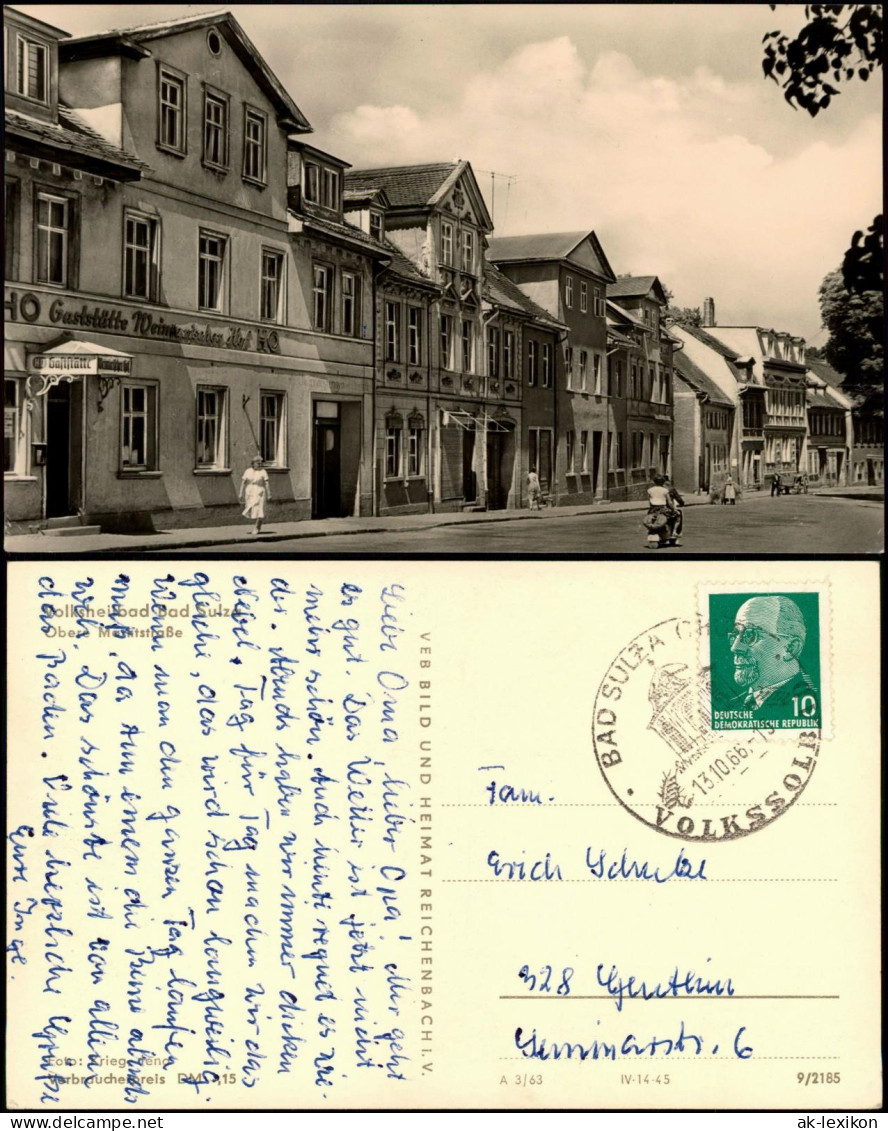 HO Gaststätte Weimarischer Hof HO
Gaststätte
Volksheilbad Bad Sulza
Obere Marktstraße
Liebe Oma, lieber Opa! Mir geht
es gut. Das Wetter ist jetzt nicht
mehr schön. Auch heute regnet es wie-
der. Abends haben wir immer dicken
Nebel. Tag für Tag machen wir das
gleiche, das wird schon langweilig.
Wenn man den ganzen Tag laufen
muß, da tun einem die Beine abends
weh. Das schönste ist von allem
das Baden. Viele herzliche Grüße
Eure Inge.
Foto: Krieg
Verbraucherpreis DM ,15
VEB BILD UND HEIMAT REICHENBACH I. V.
BAD SULZA
13.10.66.-1
VOLKSSOLB
10
DEUTSCHE
DEMOKRATISCHE REPUBLIK
Fam.
Erich Schulze
328 Genthin
Seminarstr. 6
A 3/63 IV-14-45 9/2185
ak-lexikon